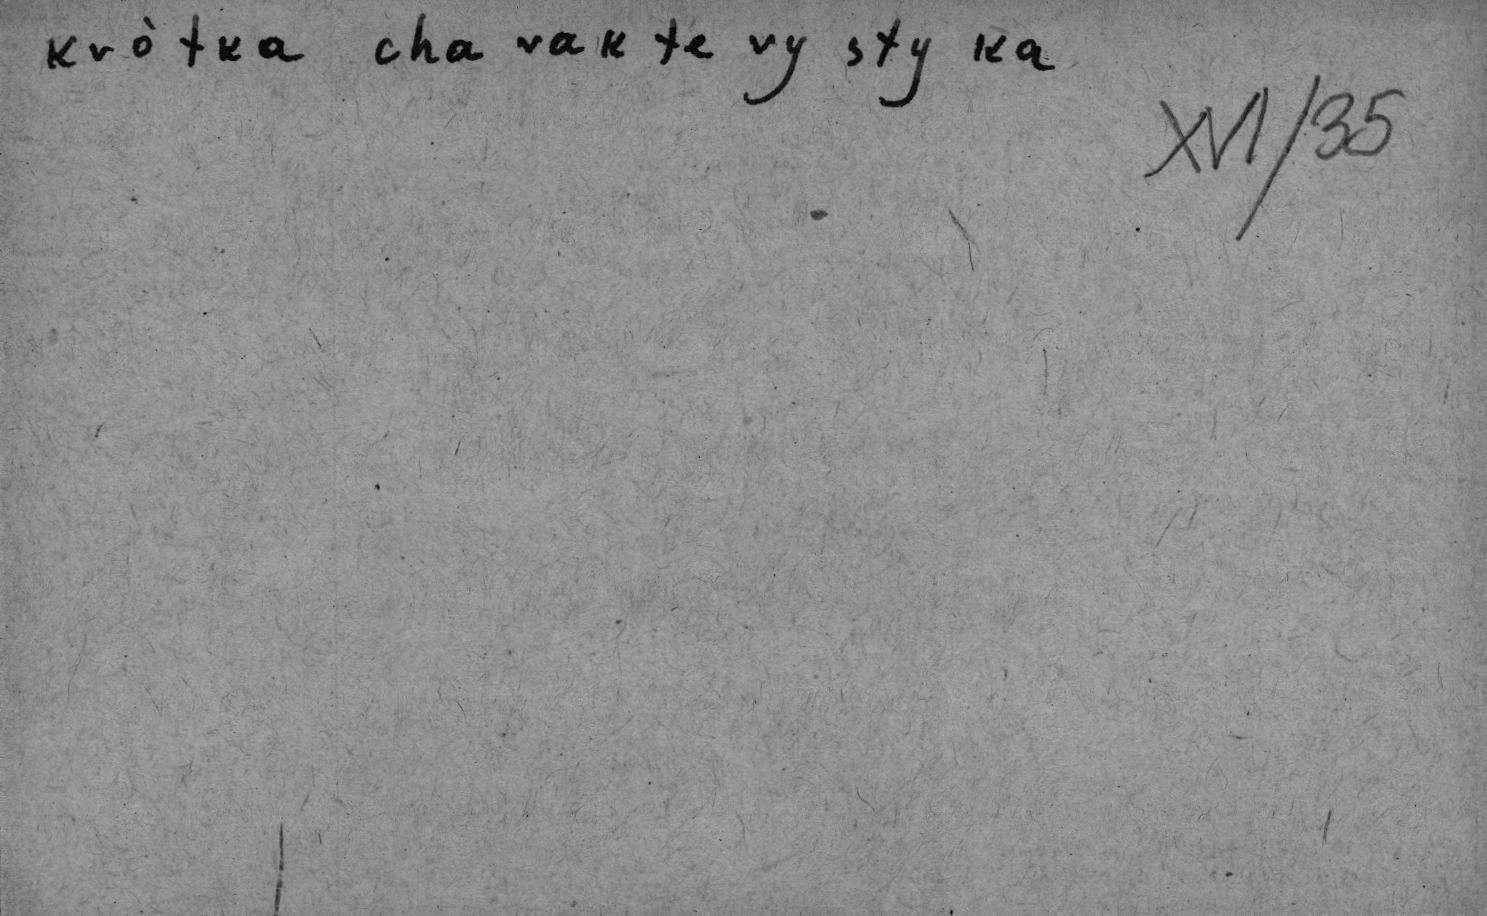 krótka charakterystyka
XVI/35